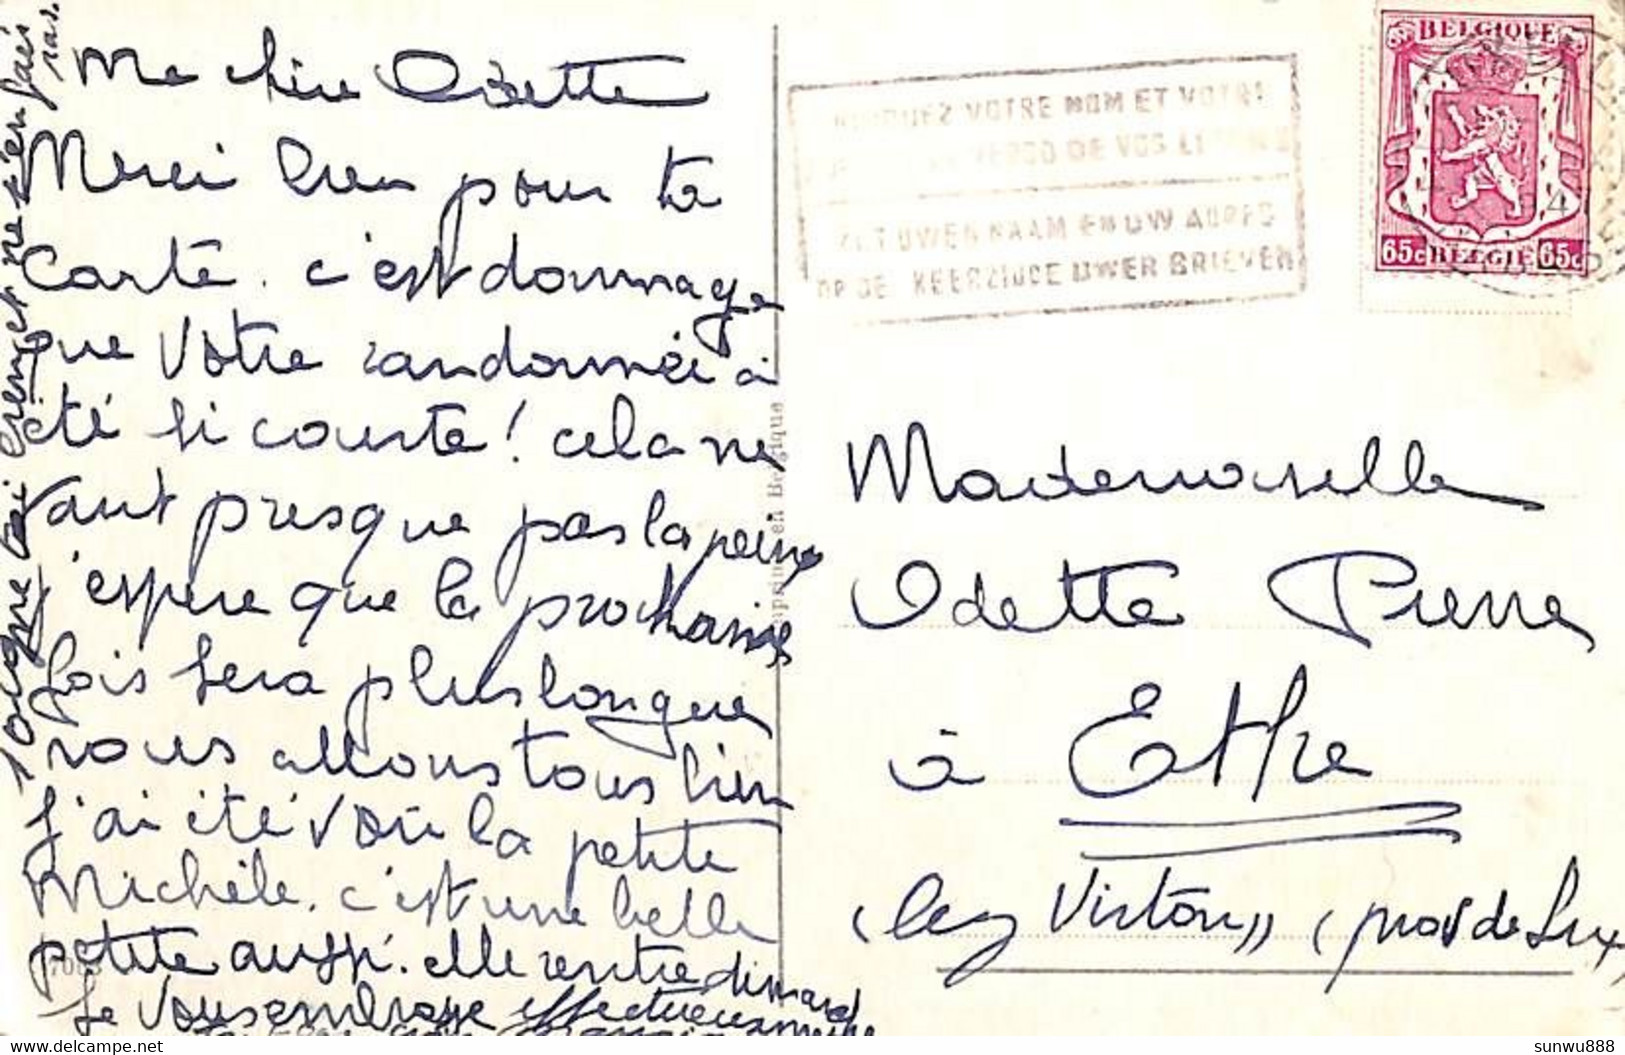 Ma chère Odette
Merci bien pour ta
Carte. c'est dommage
que Votre randonnée a
été si courte! cela ne
vaut presque pas la peine
j'espère que la prochaine
fois sera plus longue
nous allons tous bien
j'ai été voir la petite
Michèle. c'est une belle
petite aussi. elle rentre dimanche
Je Vous embrasse affectueusement
soigne toi bien et ne t'en fais
pas.
7003
Imprimé en Belgique
INDIQUEZ VOTRE NOM ET VOTRE
VERSO DE VOS LETTRES
ZET UWEN NAAM EN UW ADRES
OP DE KEERZIJDE UWER BRIEVEN
BELGIQUE
65c BELGIE 65c
Mademoiselle
Odette Pierre
à Ethe
(lez Virton) (prov de Lux
sunwu888